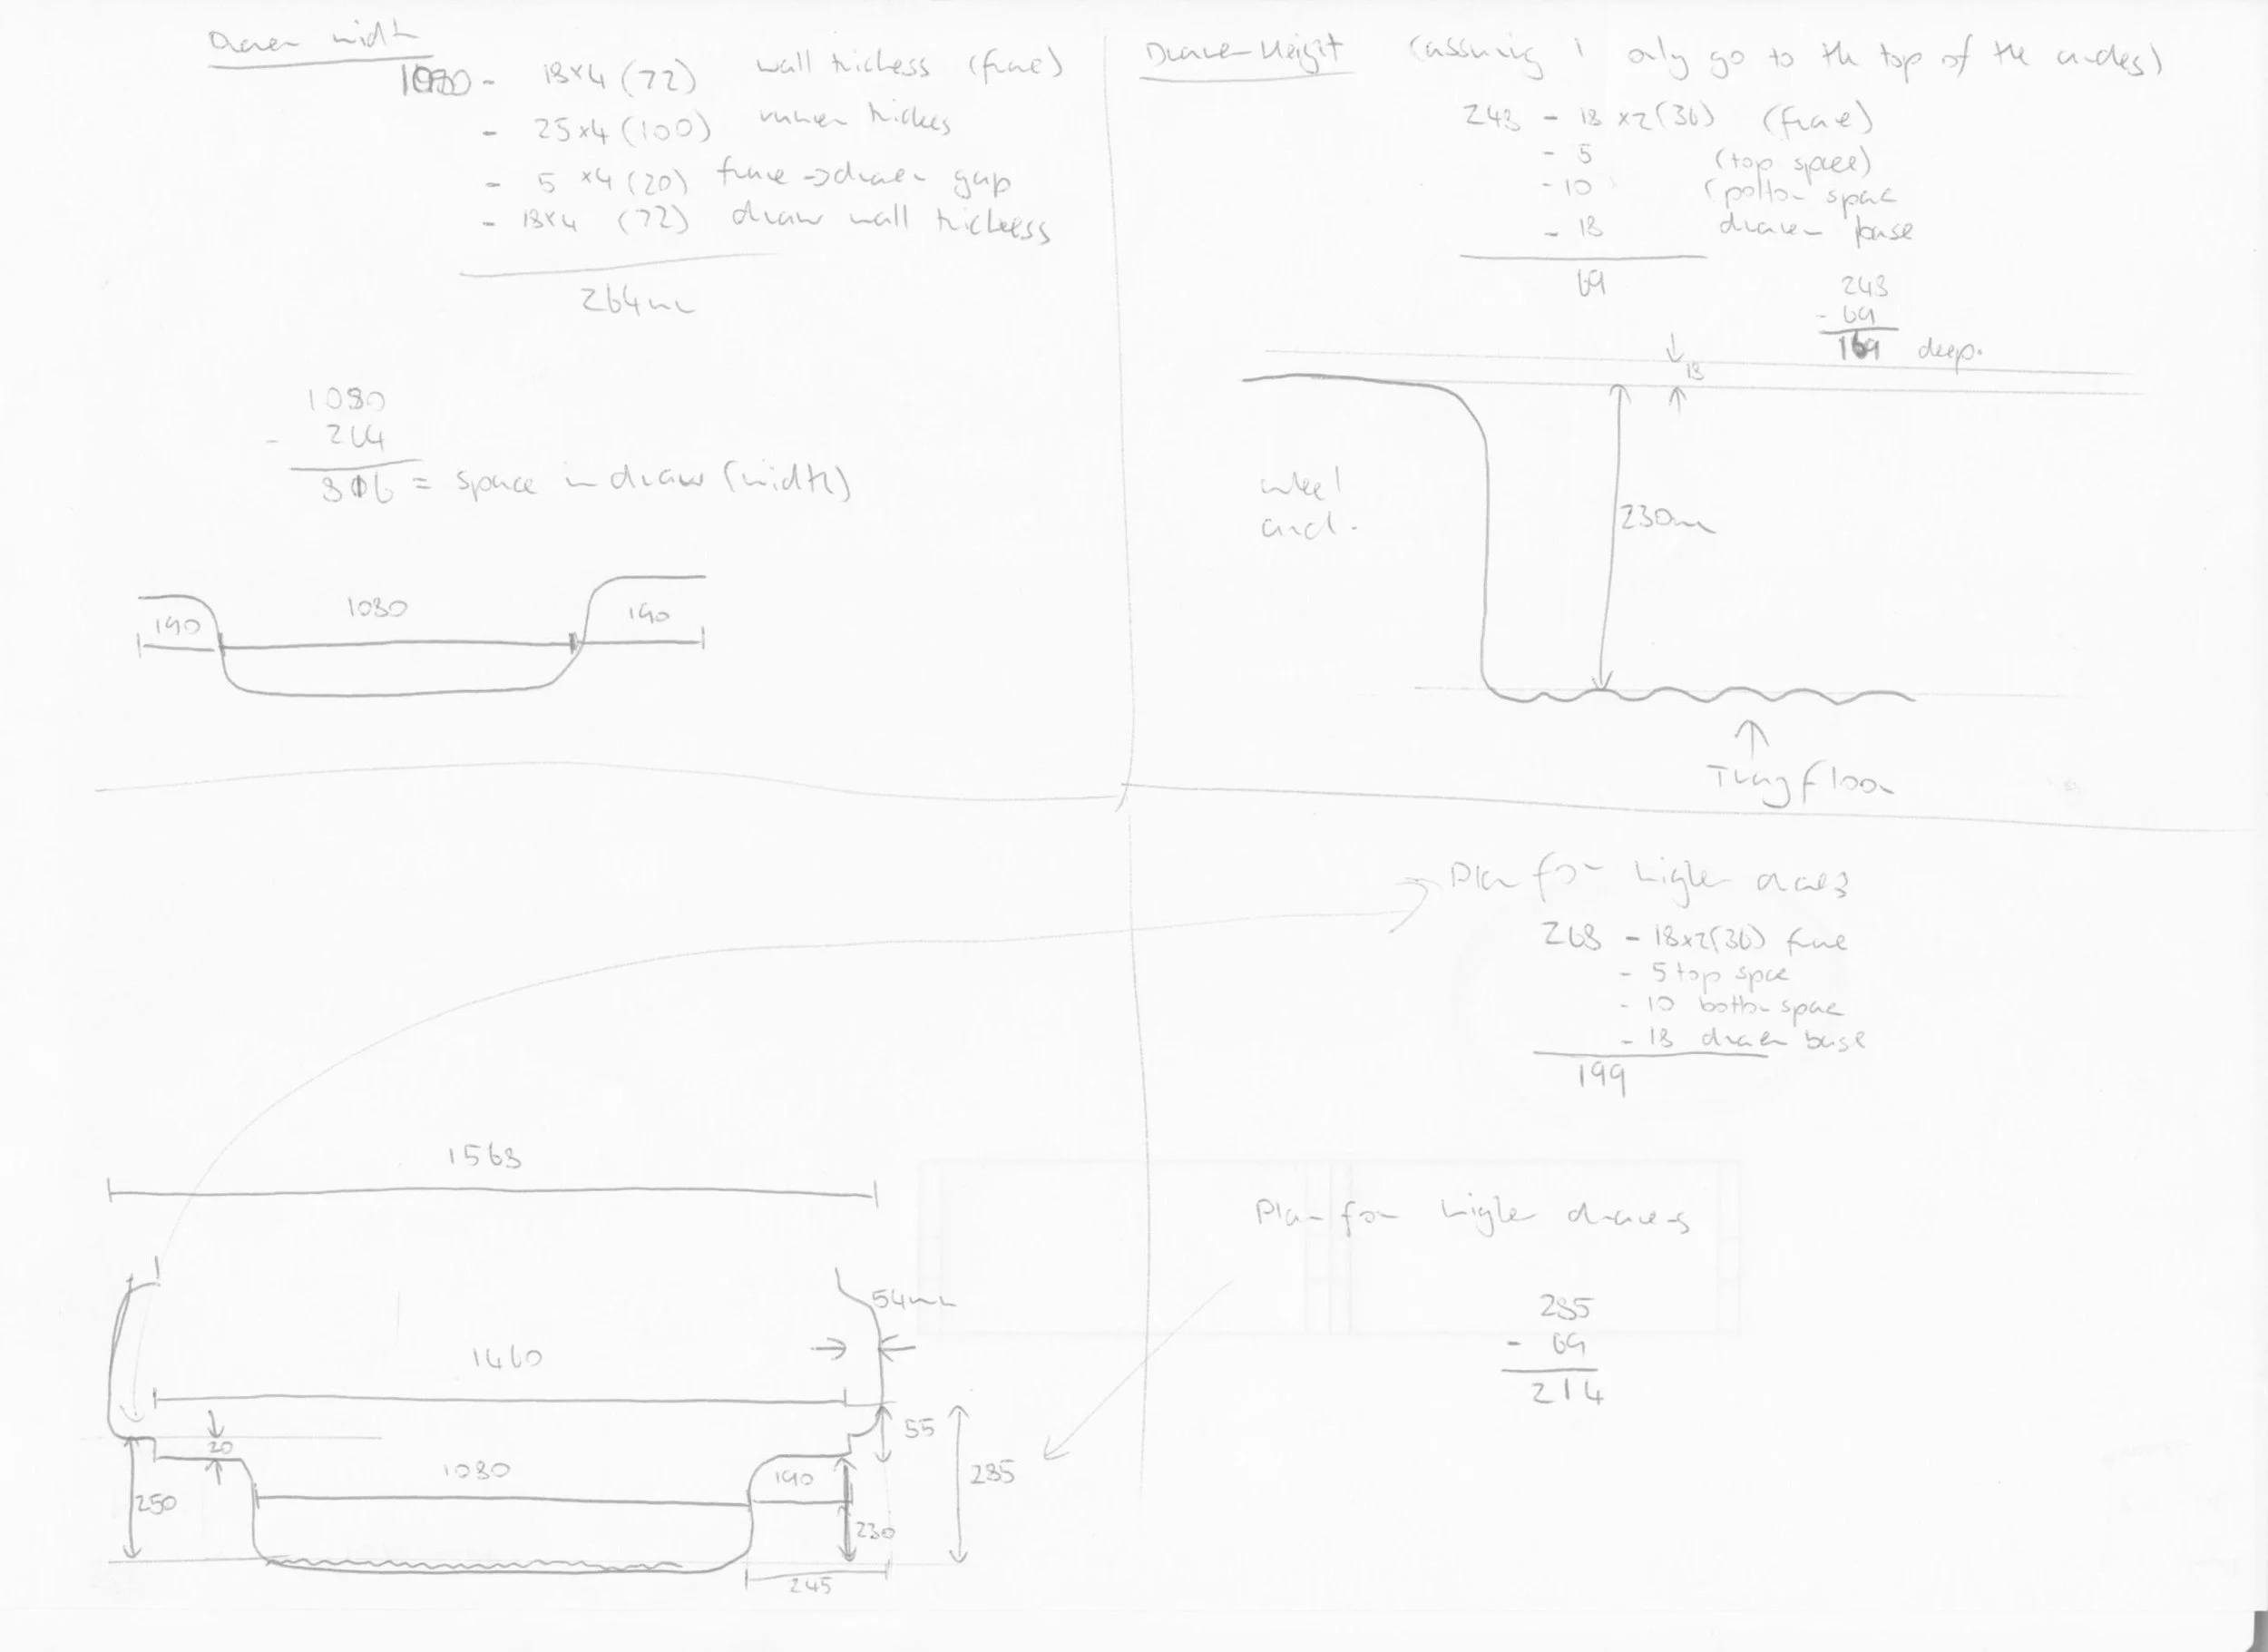 Drawer width
1080 - 18x4 (72) wall thickness (frame)
- 25x4 (100) runner thickness
- 5 x4 (20) frame -> drawer gap
- 18x4 (72) draw wall thickness
264mm
1080
- 264
816 = space in draw (width)
190 1080 190
Drawer Height (assuming i only go to the top of the arches)
248 - 18 x2(36) (frame)
- 5 (top space)
- 10 (bottom space
- 18 drawer base
69
248
- 69
169 deep.
18
wheel
arch.
230mm
Thing floor
Plan for higher draws
268 - 18x2(36) frame
- 5 top space
- 10 bottom space
- 18 drawer base
199
Plan for higher drawers
285
- 69
214
1568
54mm
1460
20
55
1080
190
285
250
230
245